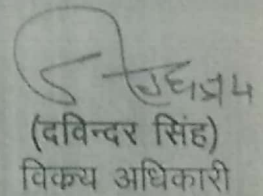 (दविन्दर सिंह)
विक्रय अधिकारी